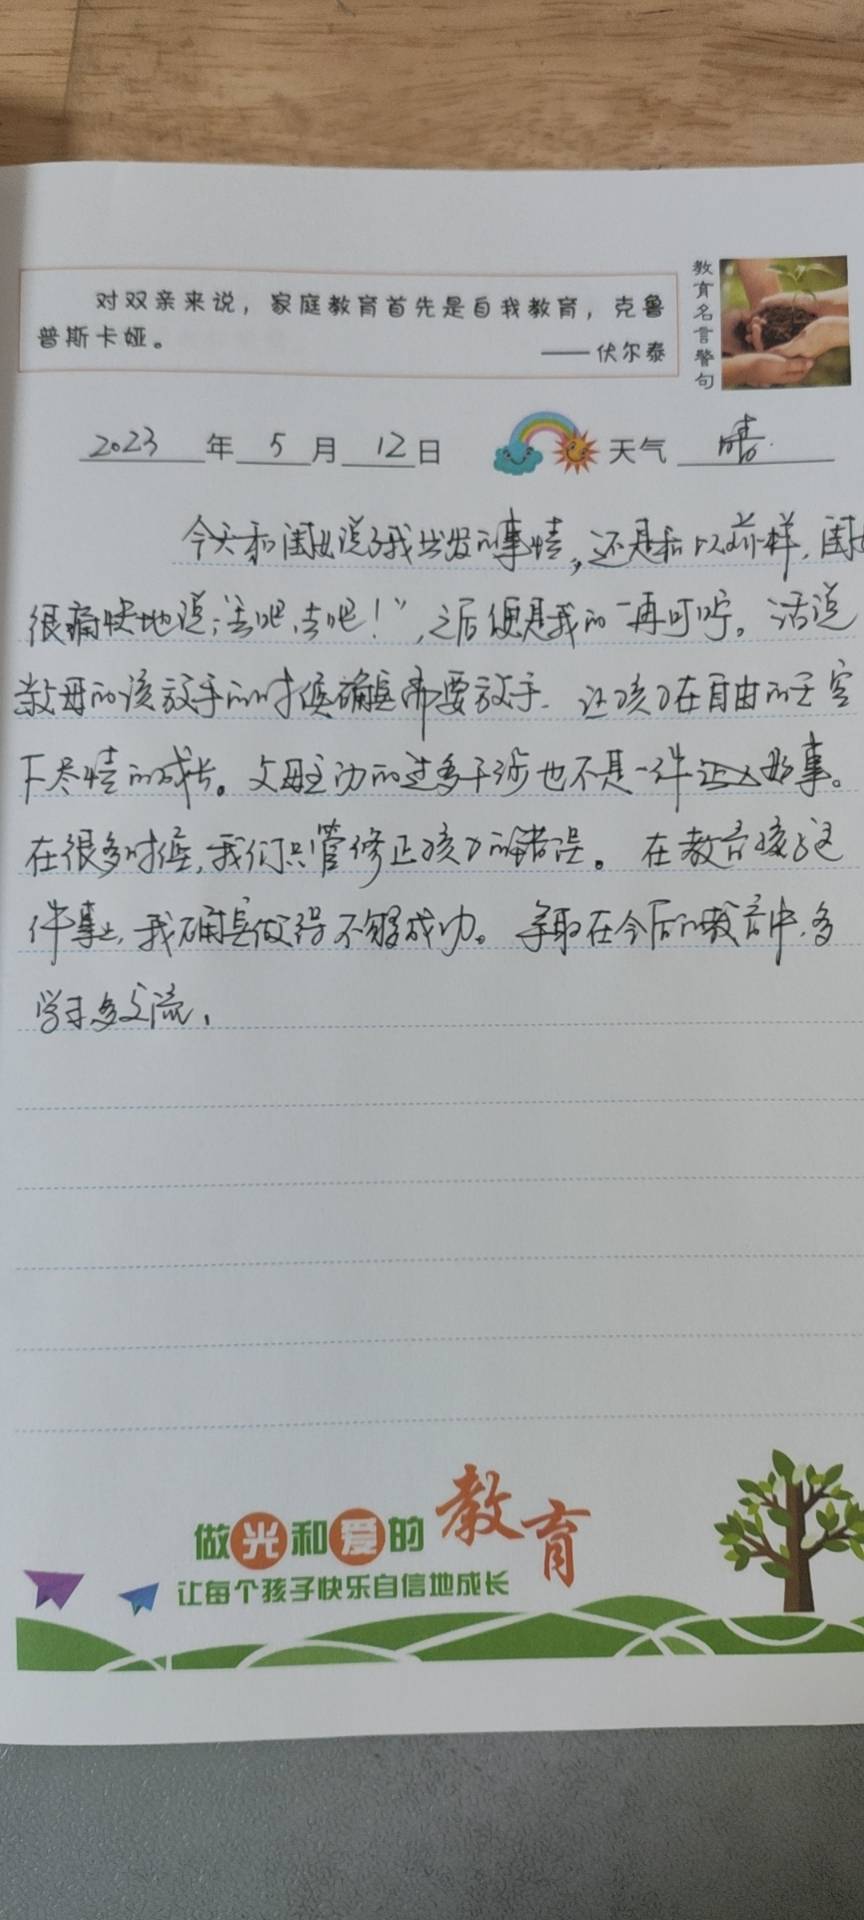 对双亲来说，家庭教育首先是自我教育，克鲁
普斯卡娅。
——伏尔泰
教育名言警句
2023年5月12日 天气 晴.
今天和闺女说了我出发的事情，还是和以前一样，闺女
很痛快地说：“去吧，去吧！”，之后便是我的一再叮咛。话说
父母的该放手的时候确实需要放手. 让孩子在自由的天空
下尽情的成长。父母主动的过多干涉也不是一件好事。
在很多时候，我们只管修正孩子的错误。在教育孩子这
件事上，我确实做得不够成功。争取在今后的教育中，多
学习多交流，
做光和爱的教育
让每个孩子快乐自信地成长